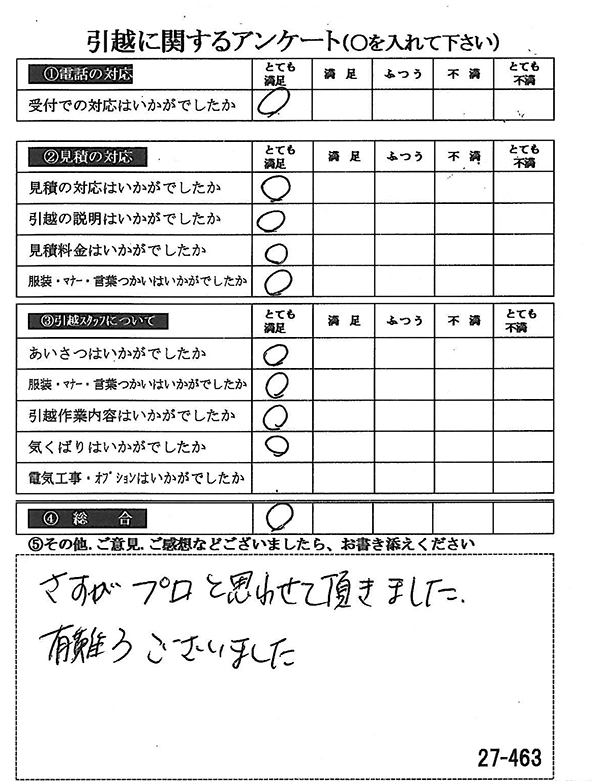 引越に関するアンケート(〇を入れて下さい)
①電話の対応 とても満足 満足 ふつう 不満 とても不満
受付での対応はいかがでしたか
②見積の対応 とても満足 満足 ふつう 不満 とても不満
見積の対応はいかがでしたか
引越の説明はいかがでしたか
見積料金はいかがでしたか
服装・マナー・言葉つかいはいかがでしたか
③引越スタッフについて とても満足 満足 ふつう 不満 とても不満
あいさつはいかがでしたか
服装・マナー・言葉つかいはいかがでしたか
引越作業内容はいかがでしたか
気くばりはいかがでしたか
電気工事・オプションはいかがでしたか
④ 総 合
⑤その他.ご意見.ご感想などございましたら、お書き添えください
さすが プロ と思わせて頂きました.
有難う ございました
27-463